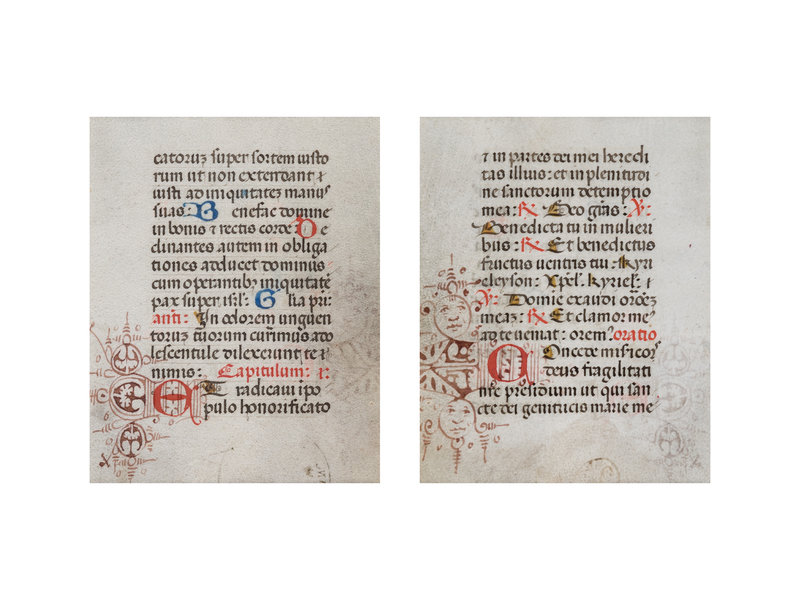 catoruz super sortem iusto
rum ut non extendant ⁊
iusti ad iniquitatez manus
suas: Benefac domine
in bonis ⁊ rectus corde De
clinantes autem in obliga
tiones adducet dominus
cum operantibz iniquitate
pax super isrl: Glia pri:
anti: In odorem unguen
toruz tuorum currimus ado
lescentule dilexerunt te ni
nimus: Capitulum:
Et radicavi i po
pulo honorificato
⁊ in partes dei mei heredi
tas illius: et in plenitudi
ne sanctorum detemptio
mea: ℟ Deo gras: ℣:
Benedicta tu in mulieri
bus: ℟ Et benedictus
fructus uentris tui: Kyri
eleyson: Xpel. Kyriel.: ⁊
℣: Domie exaudi oroez
meaz: ℟ Et clamor me
ad te veniat: orem oratio
Concede misericor
deus fragilitati
nre presidium ut qui san
cte dei genitricis marie me